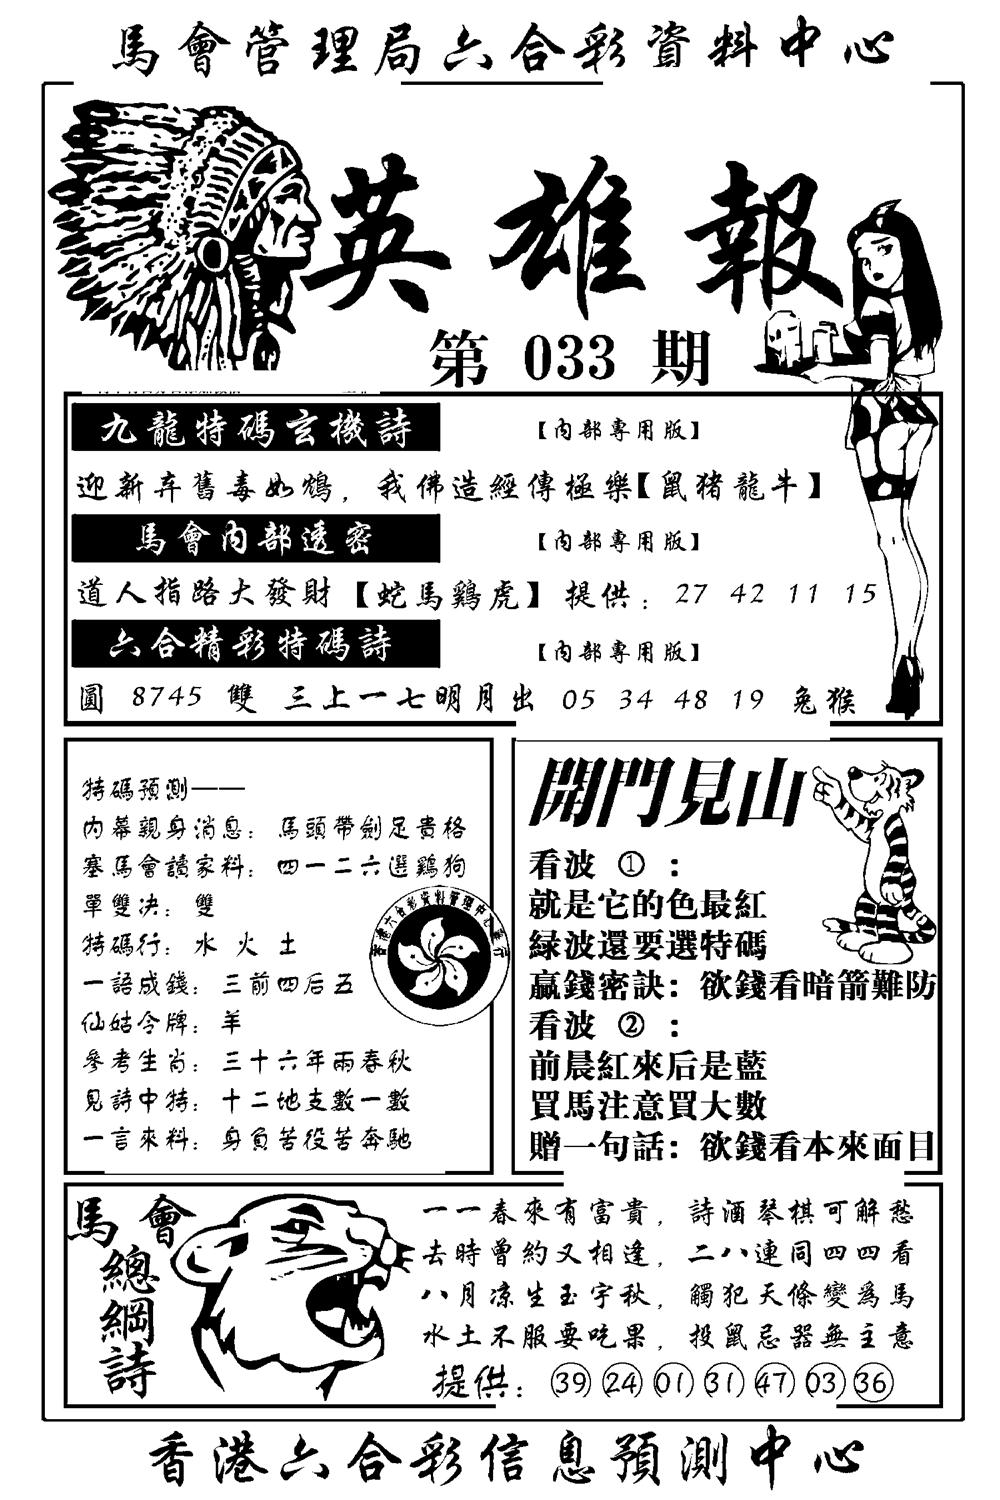 馬會管理局六合彩資料中心
英雄報
第 033 期
九龍特碼玄機詩 【內部專用版】
迎新弃舊毒如鴆，我佛造經傳極樂【鼠猪龍牛】
馬會內部透密 【內部專用版】
道人指路大發財【蛇馬鷄虎】提供：27 42 11 15
六合精彩特碼詩 【內部專用版】
圓 8745 雙 三上一七明月出 05 34 48 19 兔猴
特碼預測——
內幕親身消息：馬頭帶劍足貴格
塞馬會讀家料：四一二六選鷄狗
單雙决：雙
特碼行：水 火 土
一語成錢：三前四后五
仙姑令牌：羊
參考生肖：三十六年兩春秋
見詩中特：十二地支數一數
一言來料：身負苦役苦奔馳
香港六合彩資料管理中心發行
開門見山
看波 ① ：
就是它的色最紅
緑波還要選特碼
贏錢密訣：欲錢看暗箭難防
看波 ② ：
前晨紅來后是藍
買馬注意買大數
贈一句話：欲錢看本來面目
馬會
總綱詩
一一春來有富貴，詩酒琴棋可解愁
去時曾約又相逢，二八連同四四看
八月凉生玉宇秋，觸犯天條變爲馬
水土不服要吃果，投鼠忌器無主意
提供：39 24 01 31 47 03 36
香港六合彩信息預測中心